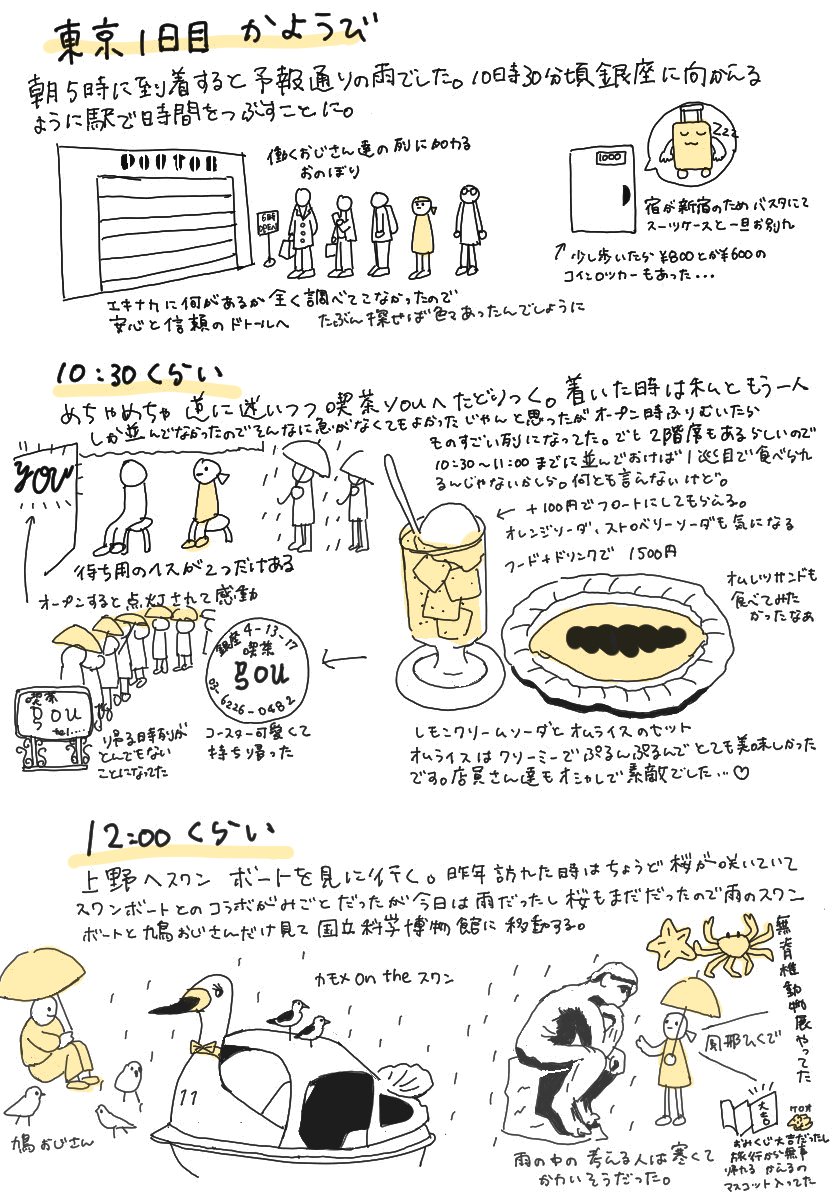 東京1日目 かようび
朝5時に到着すると予報通りの雨でした。10時30分頃銀座に向かえる
ように駅で時間をつぶすことに。
DOUTOR
働くおじさん達の列に加わる
おのぼり
6時
OPEN
1000
zzz
宿が新宿のため バスタにて
スーツケースと一旦お別れ
少し歩いたら ¥800とか¥600の
コインロッカーもあった...
エキナカに何があるか全く調べてこなかったので
安心と信頼のドトールへ たぶん探せば色々あったんでしょうに
10:30くらい
めちゃめちゃ 道に迷いつつ 喫茶YOUへたどりつく。着いた時は私ともう一人
しか並んでなかったのでそんなに急がなくてもよかったじゃんと思ったが オープン時ふりむいたら
ものすごい列になってた。でも2階席もあるらしいので
10:30〜11:00までに並んでおけば1巡目で食べられ
るんじゃないかしら。何とも言えないけど。
you
待ち用のイスが2つだけある
オープンすると点灯されて感動
+100円でフロートにしてもらえる。
オレンジソーダ、ストロベリーソーダも気になる
フード+ドリンクで 1500円
オムレツサンドも
食べてみた
かったなぁ
喫茶
YOU
tel....
帰る時列が
とんでもない
ことになってた
銀座 4-13-17
喫茶
you
6226-0482
コースター可愛くて
持ち帰った
レモンクリームソーダと オムライスのセット
オムライスは クリーミーで ぷるんぷるんで とても美味しかった
です。店員さん達もオシャレで素敵でした...♡
12:00くらい
上野へスワン ボートを見に行く。昨年訪れた時はちょうど桜が咲いていて
スワンボートとのコラボがみごとだったが今日は雨だったし桜もまだだったので雨のスワン
ボートと鳩おじさんだけ見て国立科学博物館に移動する。
カモメ on the スワン
11
鳩おじさん
無脊椎動物展やってた
風邪ひくで
雨の中の 考える人は寒くて
かわいそうだった。
大吉
ケロオ
おみくじ大吉だったし
旅行から無事
帰れる かえるの
マスコット入ってた